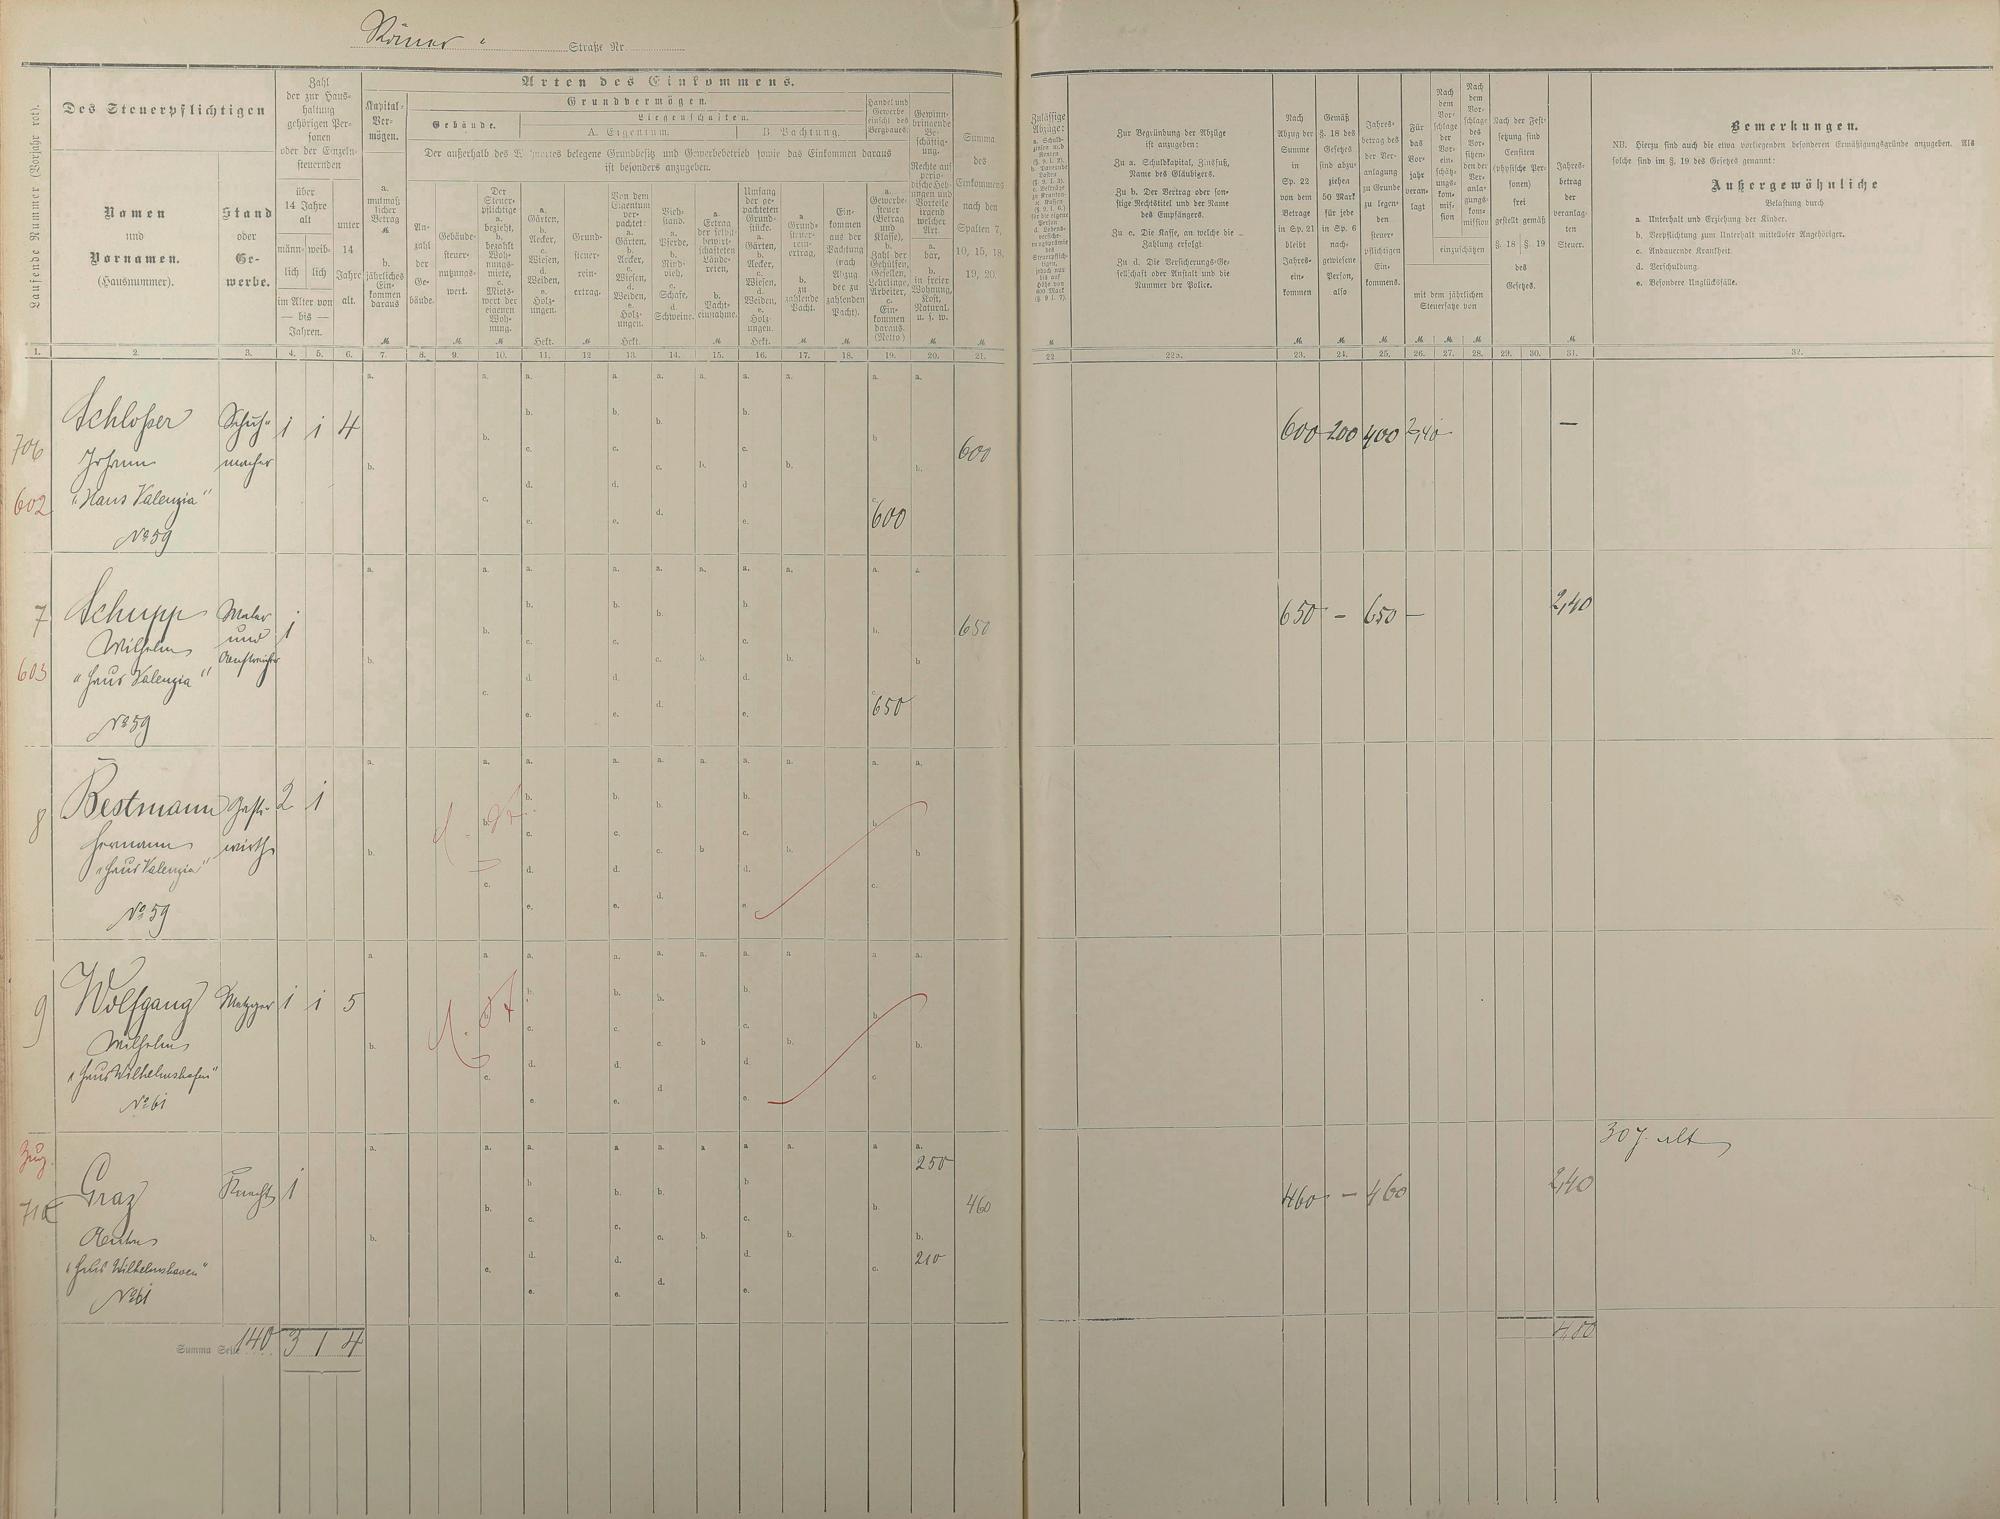 Römer Straße Nr.
Laufende Nummer (Vorjahr rot).
Des Steuerpflichtigen
Namen
und
Vornamen.
(Hausnummer).
Stand
oder
Ge-
werbe.
Zahl
der zur Haus-
haltung
gehörigen Per-
sonen
oder der Einzeln-
steuernden
über
14 Jahre
alt
männ-
lich
weib-
lich
im Alter von
— bis —
Jahren.
unter
14
Jahre
alt.
Arten des Einkommens.
Kapital-
Ver-
mögen.
a.
mutmaß-
licher
Betrag
b.
jährliches
Ein-
kommen
daraus
Grundvermögen.
Gebäude.
Liegenschaften.
A. Eigentum.
B. Pachtung.
Der außerhalb des Wohnortes belegene Grundbesitz und Gewerbebetrieb sowie das Einkommen daraus
ist besonders anzugeben.
An-
zahl
der
Ge-
bäude.
Gebäude-
steuer-
nutzungs-
wert.
Der
Steuer-
pflichtige
a.
bezieht,
b.
bezahlt
Woh-
nungs-
miete,
c.
Miets-
wert der
eigenen
Woh-
nung.
a.
Gärten,
b.
Aecker,
c.
Wiesen,
d.
Weiden,
e.
Holz-
ungen.
Hekt.
Grund-
steuer-
rein-
ertrag.
Von dem
Eigentum
ver-
pachtet:
a.
Gärten,
b.
Aecker,
c.
Wiesen,
d.
Weiden,
e.
Holz-
ungen.
Hekt.
Vieh-
stand.
a.
Pferde,
b.
Rind-
vieh,
c.
Schafe,
d.
Schweine.
a.
Ertrag
der selbst
bewirt-
schafteten
Lände-
reien,
b.
Pacht-
einnahme.
Umfang
der ge-
pachteten
Grund-
stücke.
a.
Gärten,
b.
Aecker,
c.
Wiesen,
d.
Weiden,
e.
Holz-
ungen.
Hekt.
a.
Grund-
steuer-
rein-
ertrag,
b.
zu
zahlende
Pacht.
Ein-
kommen
aus der
Pachtung
(nach
Abzug
der zu
zahlenden
Pacht).
Handel und
Gewerbe
einschl des
Bergbaues.
a.
Gewerbe-
steuer
(Betrag
und
Klasse),
b.
Zahl der
Gehülfen,
Gesellen,
Lehrlinge,
Arbeiter,
c.
Ein-
kommen
daraus.
(Netto)
Gewinn-
bringende
Be-
schäftig-
ung.
Rechte auf
perio-
dische Heb-
ungen und
Vorteile
irgend
welcher
Art.
a.
bar,
b.
in freier
Wohnung,
Kost,
Natural.
u. s. w.
Summa
des
Einkommens
nach den
Spalten 7,
10, 15, 18,
19, 20.
Zulässige
Abzüge:
Zur Begründung der Abzüge
ist anzugeben:
Zu a. Schuldkapital, Zinsfuß,
Name des Gläubigers.
Zu b. Der Vertrag oder son-
stige Rechtstitel und der Name
des Empfängers.
Zu c. Die Kasse, an welche die
Zahlung erfolgt.
Zu d. Die Versicherungs-Ge-
sellschaft oder Anstalt und die
Nummer der Police.
Nach
Abzug der
Summe
in
Sp. 22
von dem
Betrage
in Sp. 21
bleibt
Jahres-
ein-
kommen
Gemäß
§. 18 des
Gesetzes
sind abzu-
ziehen
50 Mark
für jede
in Sp. 6
nach-
gewiesene
Person,
also
Jahres-
betrag des
der Ver-
anlagung
zu Grunde
zu legen-
den
steuer-
pflichtigen
Ein-
kommens.
Für
das
Vor-
jahr
veran-
lagt
Nach
dem
Vor-
schlage
der
Vor-
ein-
schätz-
ungs-
kom-
mis-
sion
Nach
dem
Vor-
schlage
des
Vor-
sitzen-
den der
Ver-
anla-
gungs-
kom-
mission
einzuschätzen
mit dem jährlichen
Steuersatze von
Nach der Fest-
setzung sind
Censiten
(physische Per-
sonen)
frei
gestellt gemäß
§. 18 §. 19
des
Gesetzes.
Jahres-
betrag
der
veranlag-
ten
Steuer.
Bemerkungen.
NB. Hierzu sind auch die etwa vorliegenden besonderen Ermäßigungsgründe anzugeben. Als
solche sind im §. 19 des Gesetzes genannt:
Außergewöhnliche
Belastung durch
a. Unterhalt und Erziehung der Kinder.
b. Verpflichtung zum Unterhalt mittelloser Angehöriger.
c. Andauernde Krankheit.
d. Verschuldung.
e. Besondere Unglücksfälle.
1. 2. 3. 4. 5. 6. 7. 8. 9. 10. 11. 12 13. 14. 15. 16. 17. 18. 19. 20. 21. 22 22a. 23. 24. 25. 26. 27. 28. 29. 30. 31. 32.
706 Schloßer Schuh- 1 1 4 600 600 200 400 2,40 —
602 Johann macher
"Haus Valenzia" 600
No 59
7 Schupp Maler 1 650 650 — 650 — 2,40
603 Wilhelm und Anstreicher
"Haus Valenzia" 650
No 59
8 Bestmann Gast- 2 1
Hermann wirth
"Haus Valenzia"
No 59
9 Wolfgang Metzger 1 1 5
Wilhelm
"Haus Wilhelmshafen"
No 61
Zug. 250 30 J. alt
710 Graz Knecht 1 460 460 — 460 2,40
Anton 210
"Haus Wilhelmshaven"
No 61
Summa Seite 140 3 1 4 4,80